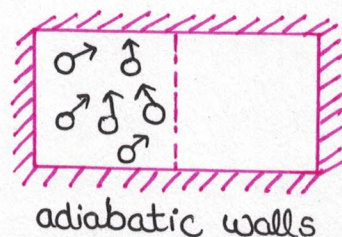 adiabatic walls